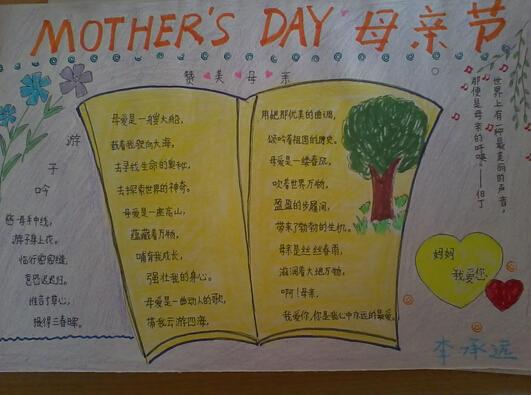 MOTHER'S DAY 母亲节
赞美母亲
游子吟
慈母手中线,
游子身上衣。
临行密密缝,
意恐迟迟归。
谁言寸草心,
报得三春晖。
母爱是一艘大船,
载着我驶向大海,
去寻找生命的奥秘,
去探索世界的神奇。
母爱是一座高山,
蕴藏着万物,
哺育我成长,
强壮我的身心。
母爱是一曲动人的歌,
带我云游四海,
用她那优美的曲调,
颂吟着祖国的历史。
母爱是一缕春风,
吹着世界万物,
盈盈的步履间,
带来了勃勃的生机。
母亲是丝丝春雨,
滋润着大地万物,
啊!母亲,
我爱你,你是我心中永远的最爱。
世界上有一种最美丽的声音,
那便是母亲的呼唤。——但丁
妈妈
我爱您
李承远